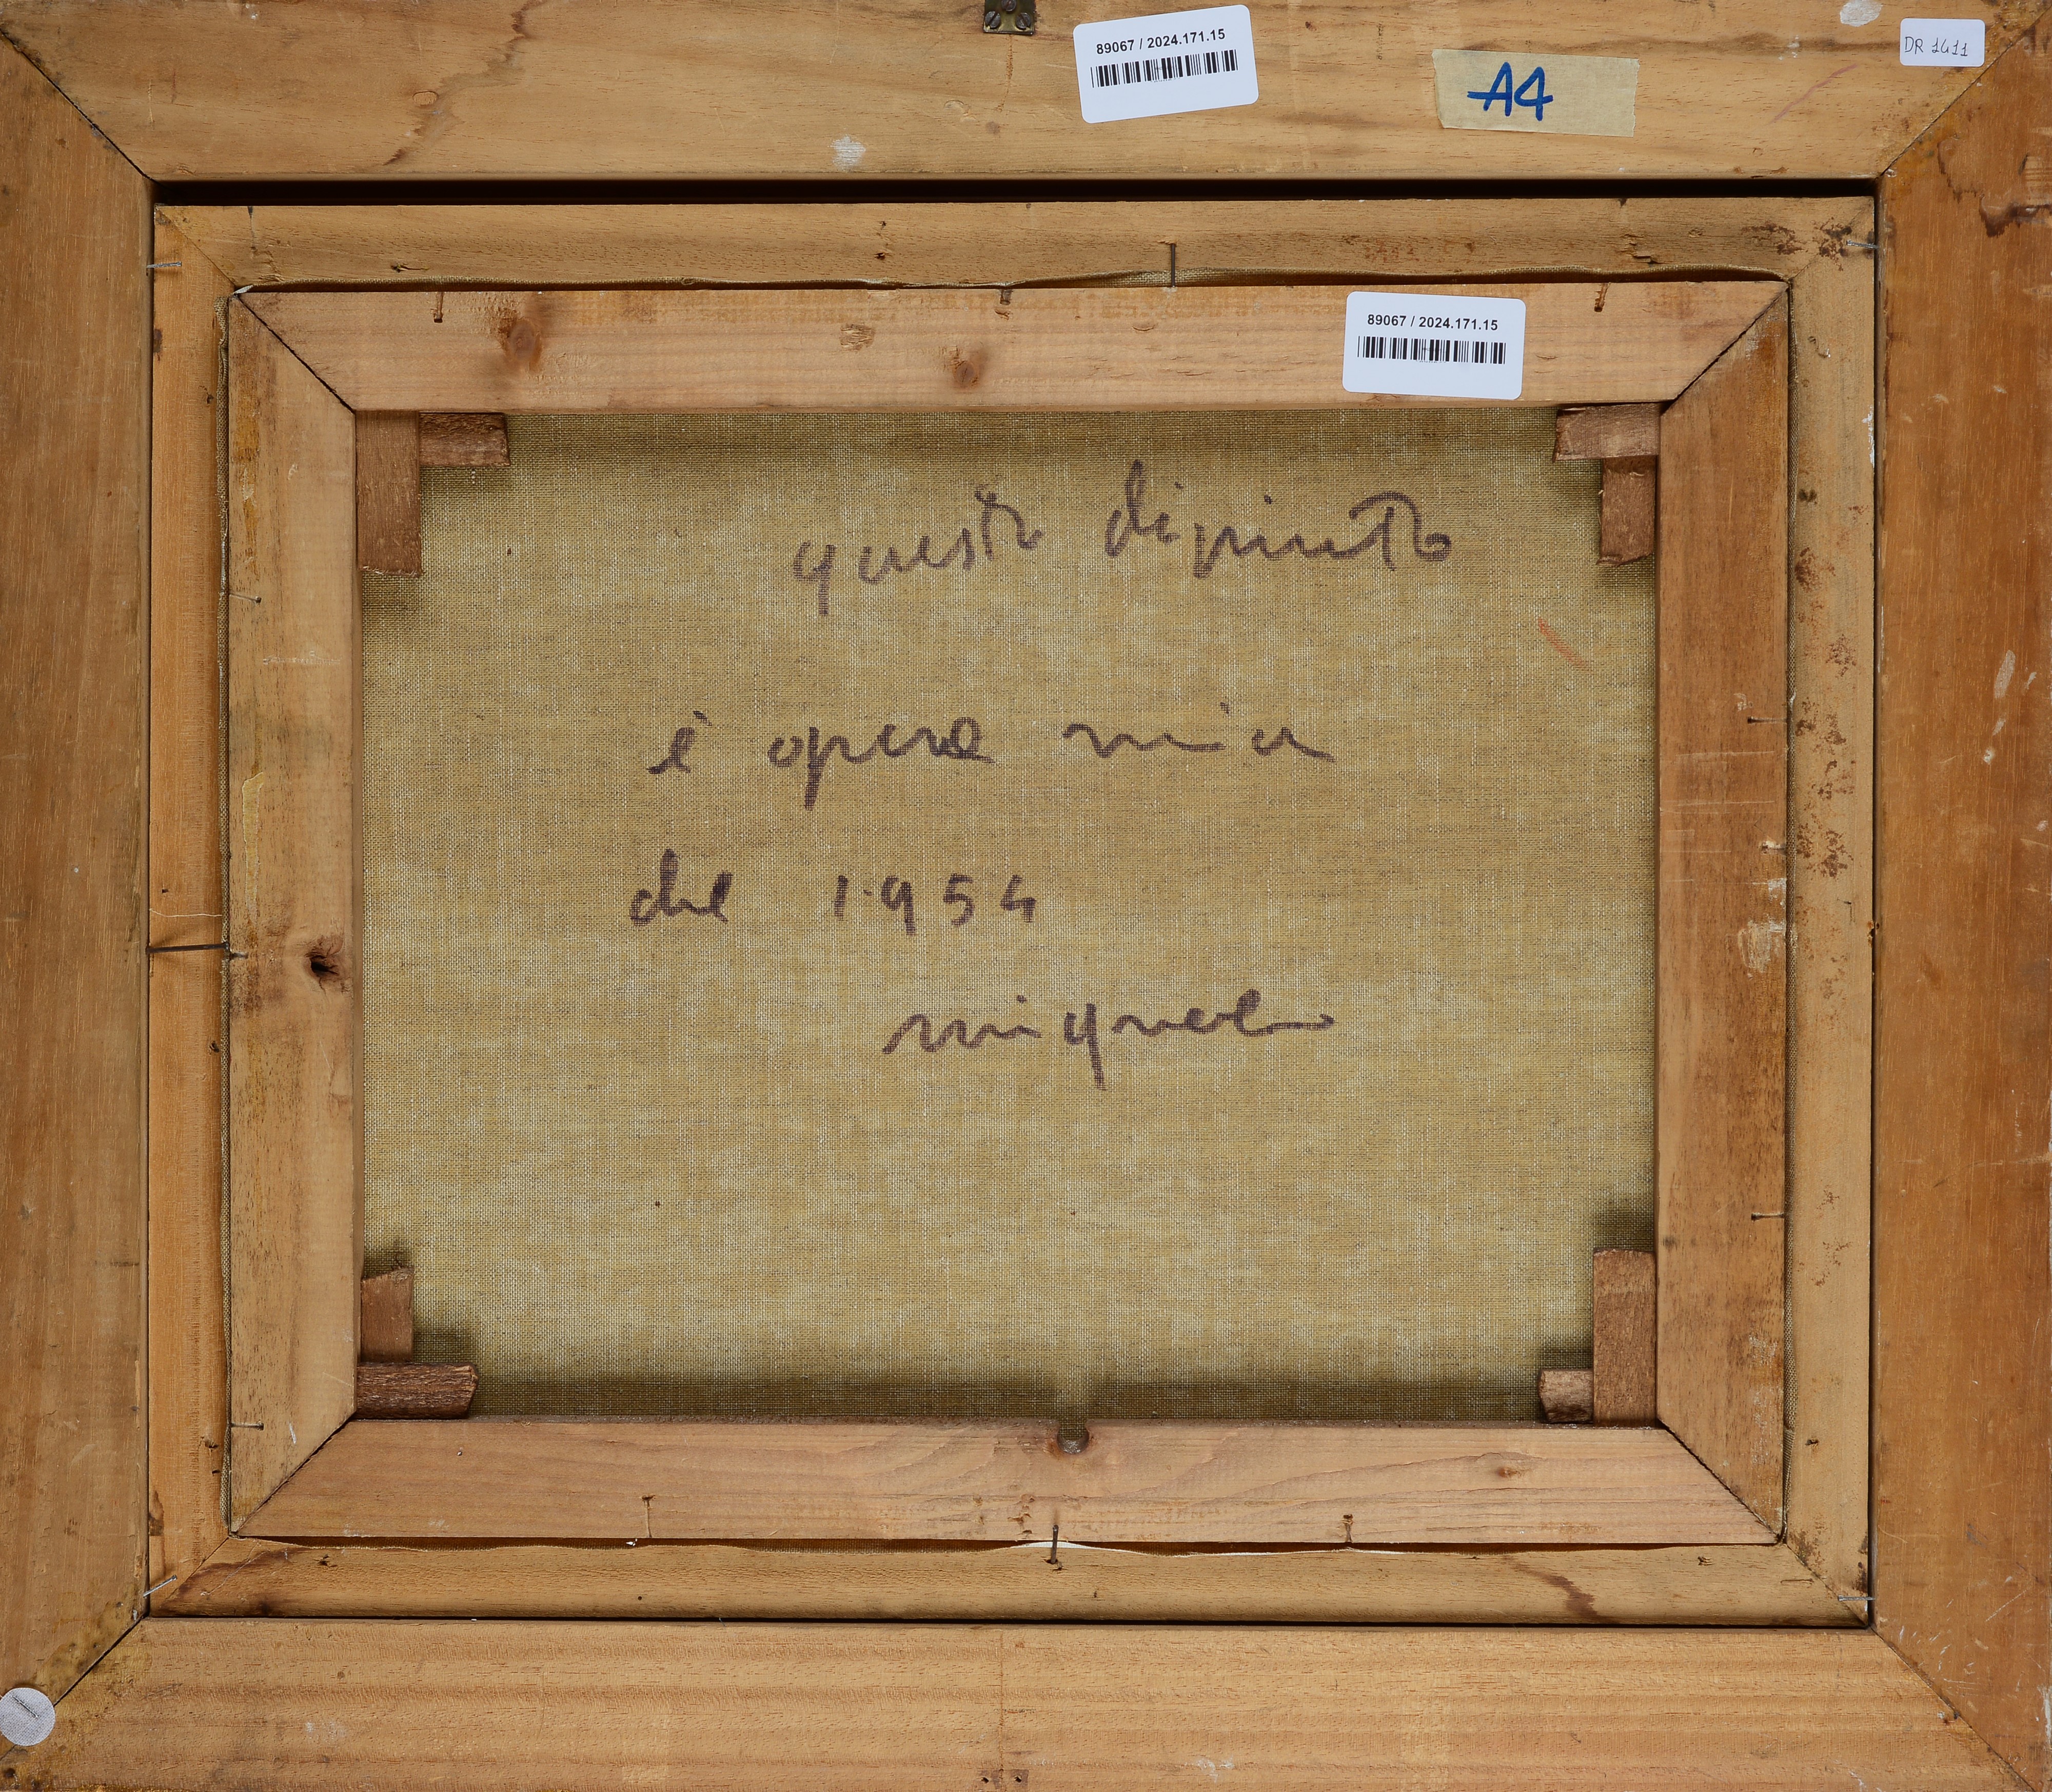 89067 / 2024.171.15
A4
DR 1411
89067 / 2024.171.15
questo dipinto
è opera mia
del 1954